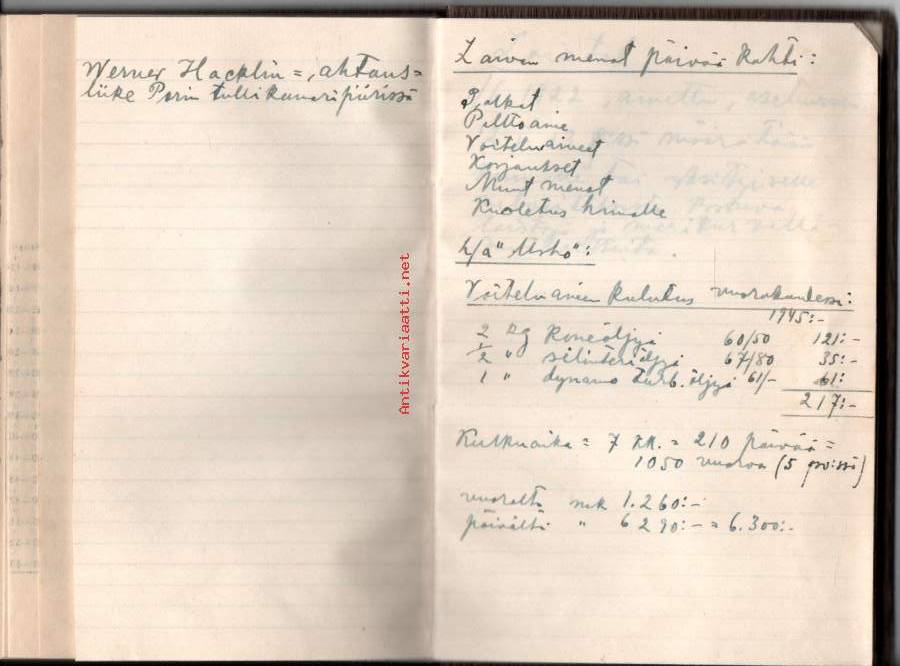 Werner Hacklin =, ahtaus=
liike Porin tullikamaripiirissä
Laivan menot päivää kohti:
Palkat
Polttoaine
Voiteluaineet
Korjaukset
Muut menot
Kuoletus hinnalle
h/a "Usko":
Voiteluaineen kulutus vuorokaudessa:
1945:-
2 kg koneöljyä 60/50 121:-
1/2 " silinteriöljyä 67/80 35:-
1 " dynamo turb. öljyä 61/- 61:
217:-
Kulkuaika = 7 kk. = 210 päivää =
1050 vuoroa (5 pv:ssä)
vuorolta mk 1.260:-
päivältä " 6290:- = 6.300:-
Antikvariaatti.net